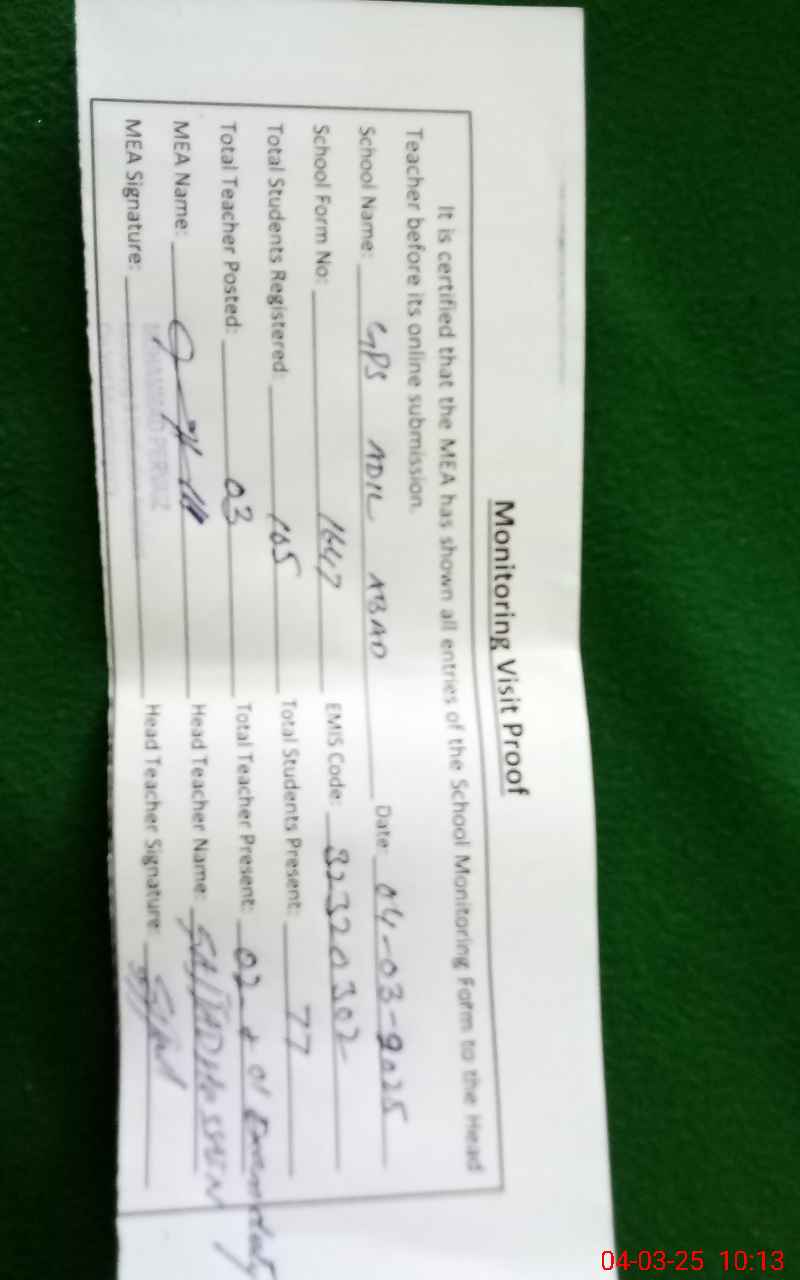 Monitoring Visit Proof
It is certified that the MEA has shown all entries of the School Monitoring Form to the Head
Teacher before its online submission.
School Name: GPS ADIL ABAD Date: 04-03-2025
School Form No: 1647 EMIS Code: 32320302
Total Students Registered: 105 Total Students Present: 77
Total Teacher Posted: 03 Total Teacher Present: 02 + 01 Exam duty
MEA Name: Head Teacher Name: SAJJAD HUSSAIN
MEA Signature: Head Teacher Signature:
MUHAMMAD PERVAIZ
04-03-25 10:13